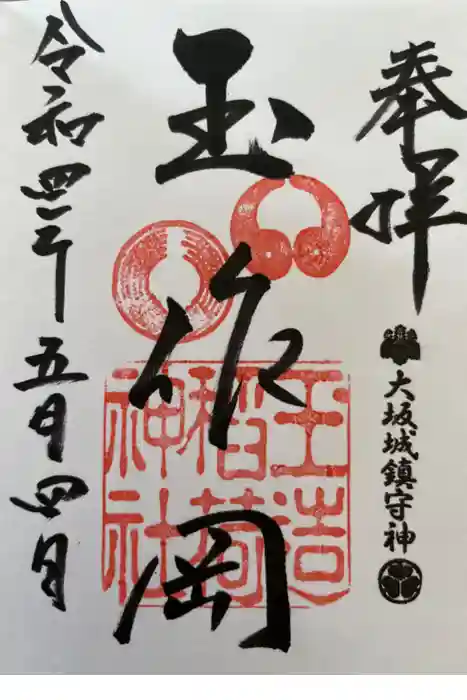 奉拝
大坂城鎮守神
玉作岡
玉造
稲荷
神社
令和四年五月四日